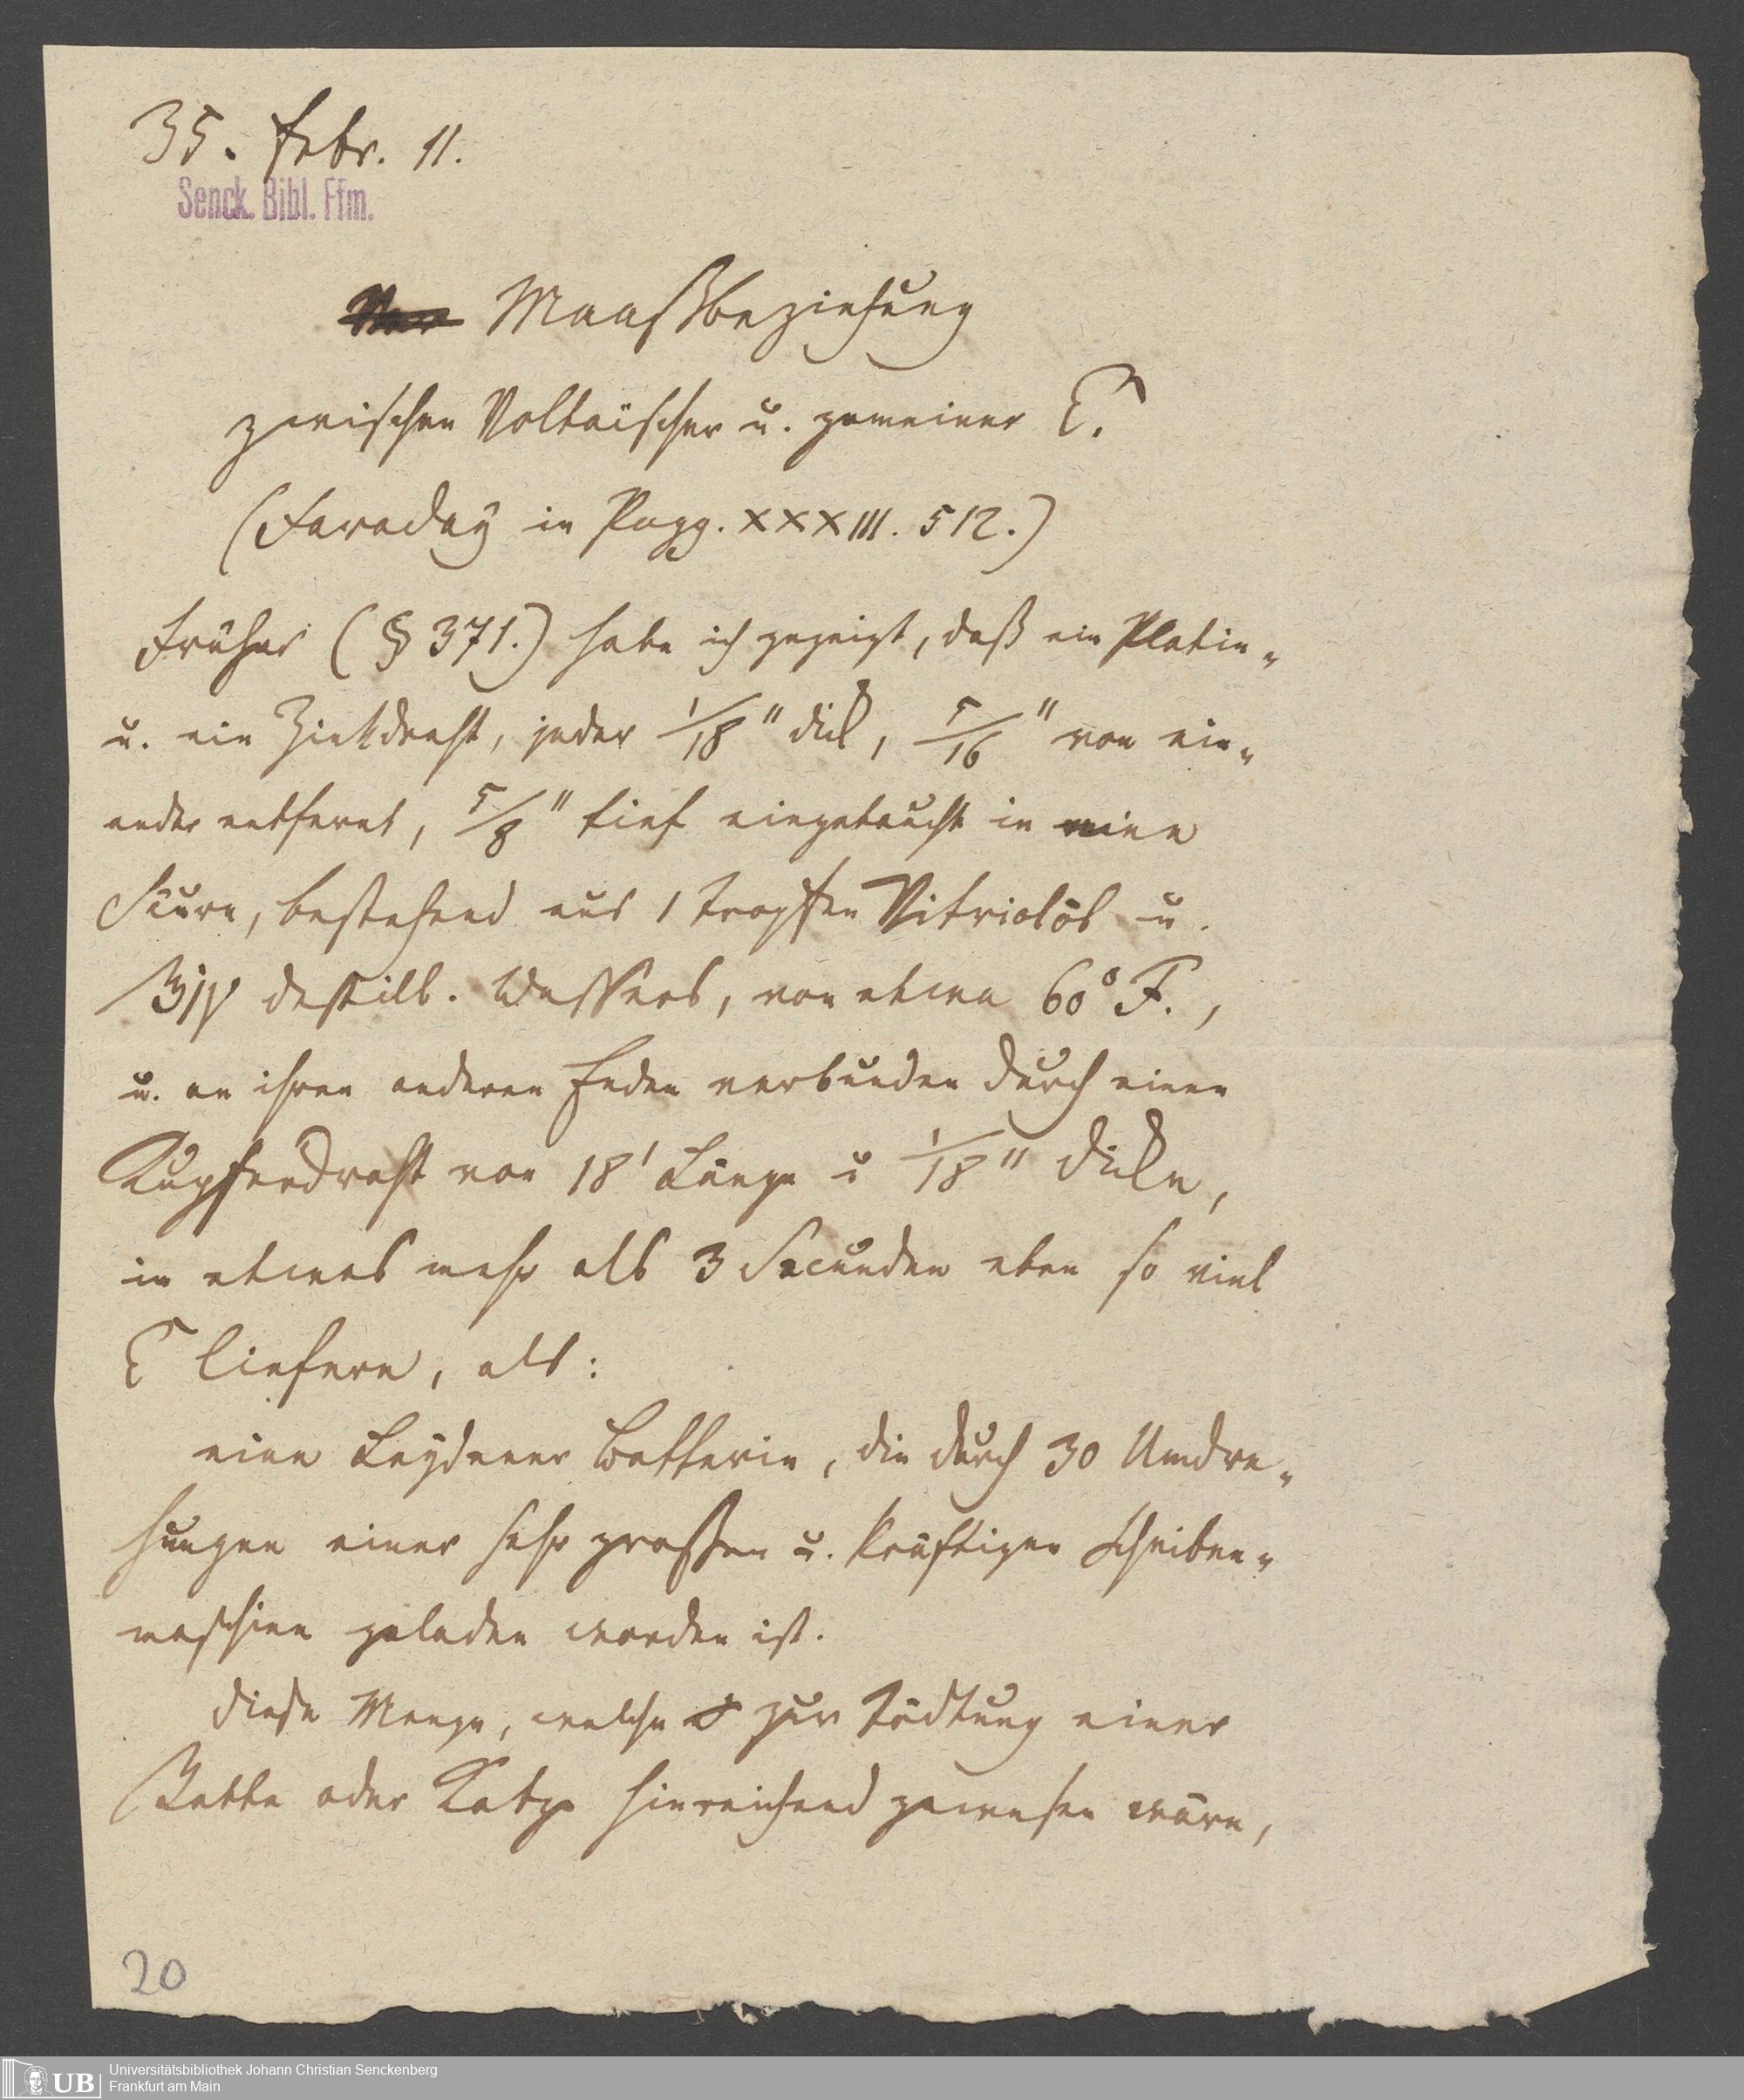 35. Febr. 11.
Senck. Bibl. Ffm.
Maaßbeziehung
zwischen Voltaischer u. gemeiner E.
(Faraday in Pogg. XXXIII. 512.)
Früher (§ 371.) habe ich gezeigt, daß ein Platin-
u. ein Zinkdraht, jeder 1/18" dick, 5/16" von ein-
ander entfernt, 5/8" tief eingetaucht in eine
Säure, bestehend aus 1 Tropfen Vitriolöl u.
℥iv destill. Wassers, von etwa 60° F.,
u. an ihren anderen Enden verbunden durch einen
Kupferdraht von 18' Länge u 1/18" Dicke,
in etwas mehr als 3 Secunden eben so viel
E liefern, als:
eine Leydener Batterie, die durch 30 Umdre-
hungen einer sehr großen u. kräftigen Scheiben-
maschine geladen worden ist.
Diese Menge, welche zur Tödtung einer
Ratte oder Katze hinreichend gewesen wäre,
20
UB
Universitätsbibliothek Johann Christian Senckenberg
Frankfurt am Main